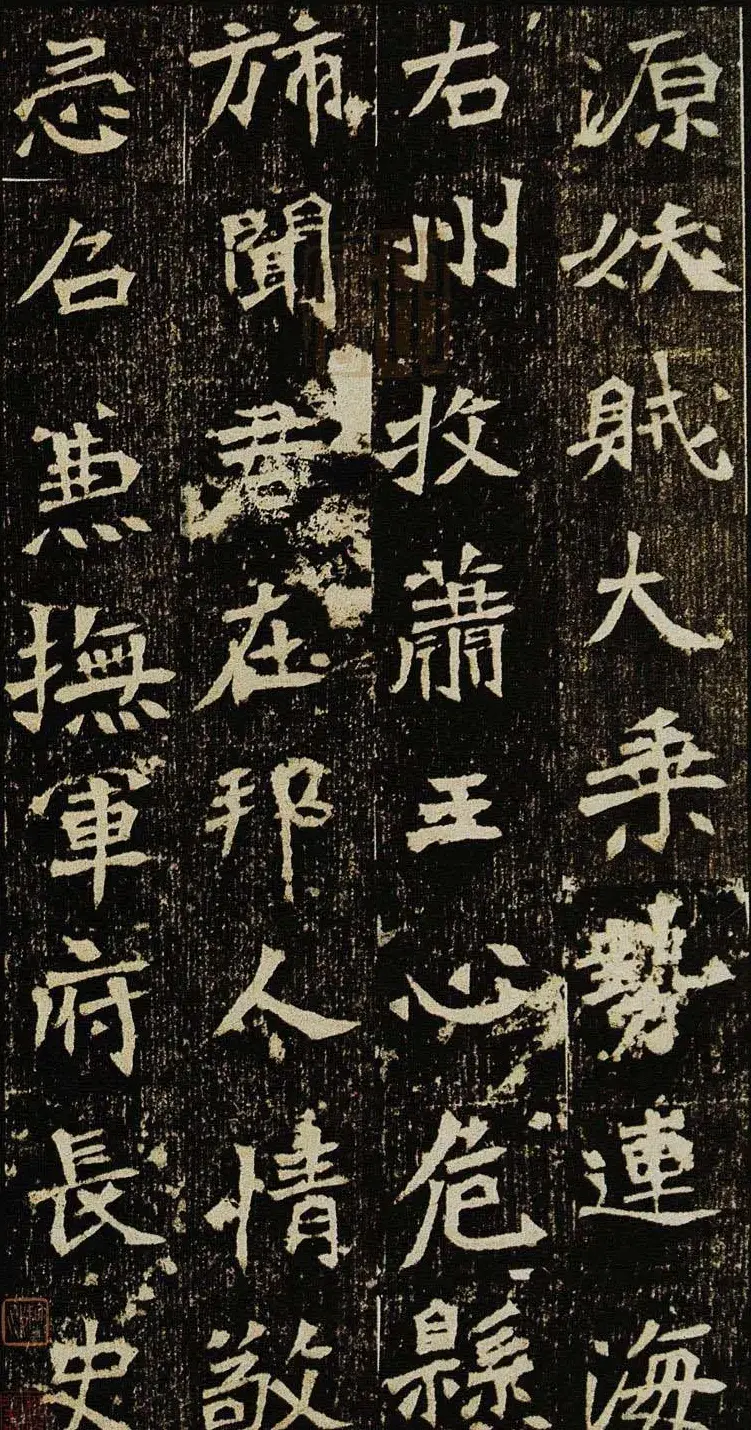 源妖賊大乗勢連海
右州牧蕭王心危懸
旆聞君在邦人情敬
忌召兼撫軍府長史